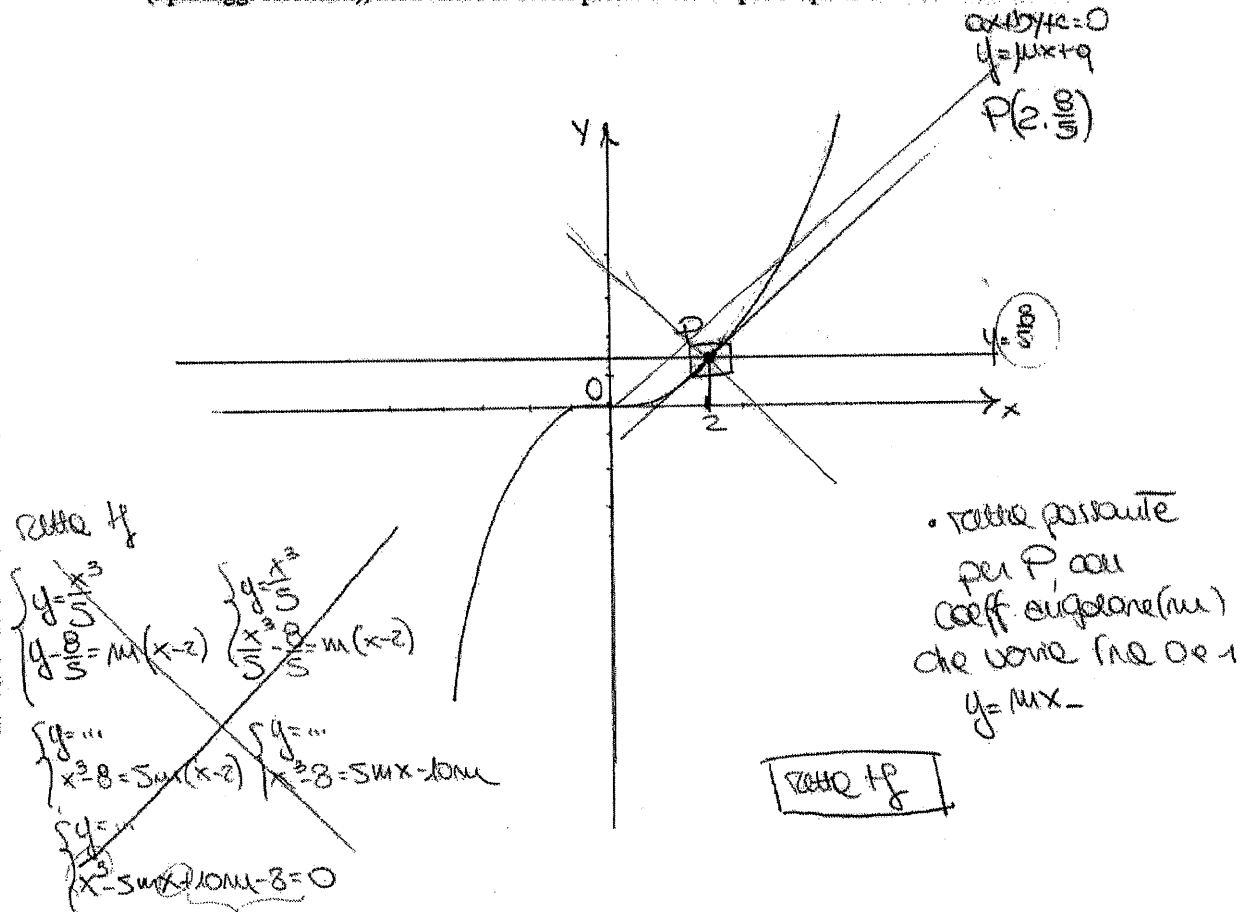 ax+by+c=0
y=mx+q
P(2, 8/5)
y
P
y=8/5
O
2
x
retta tg
{ y=x³/5
{ y-8/5=m(x-2)
{ y=x³/5
{ x³/5-8/5=m(x-2)
{ y=...
{ x³-8=5m(x-2)
{ y=...
{ x³-8=5mx-10m
{ y=...
{ x³-5mx+10m-8=0
• retta passante
per P, con
coeff. angolare (m)
che varia fra 0 e -1
y=mx-
retta tg